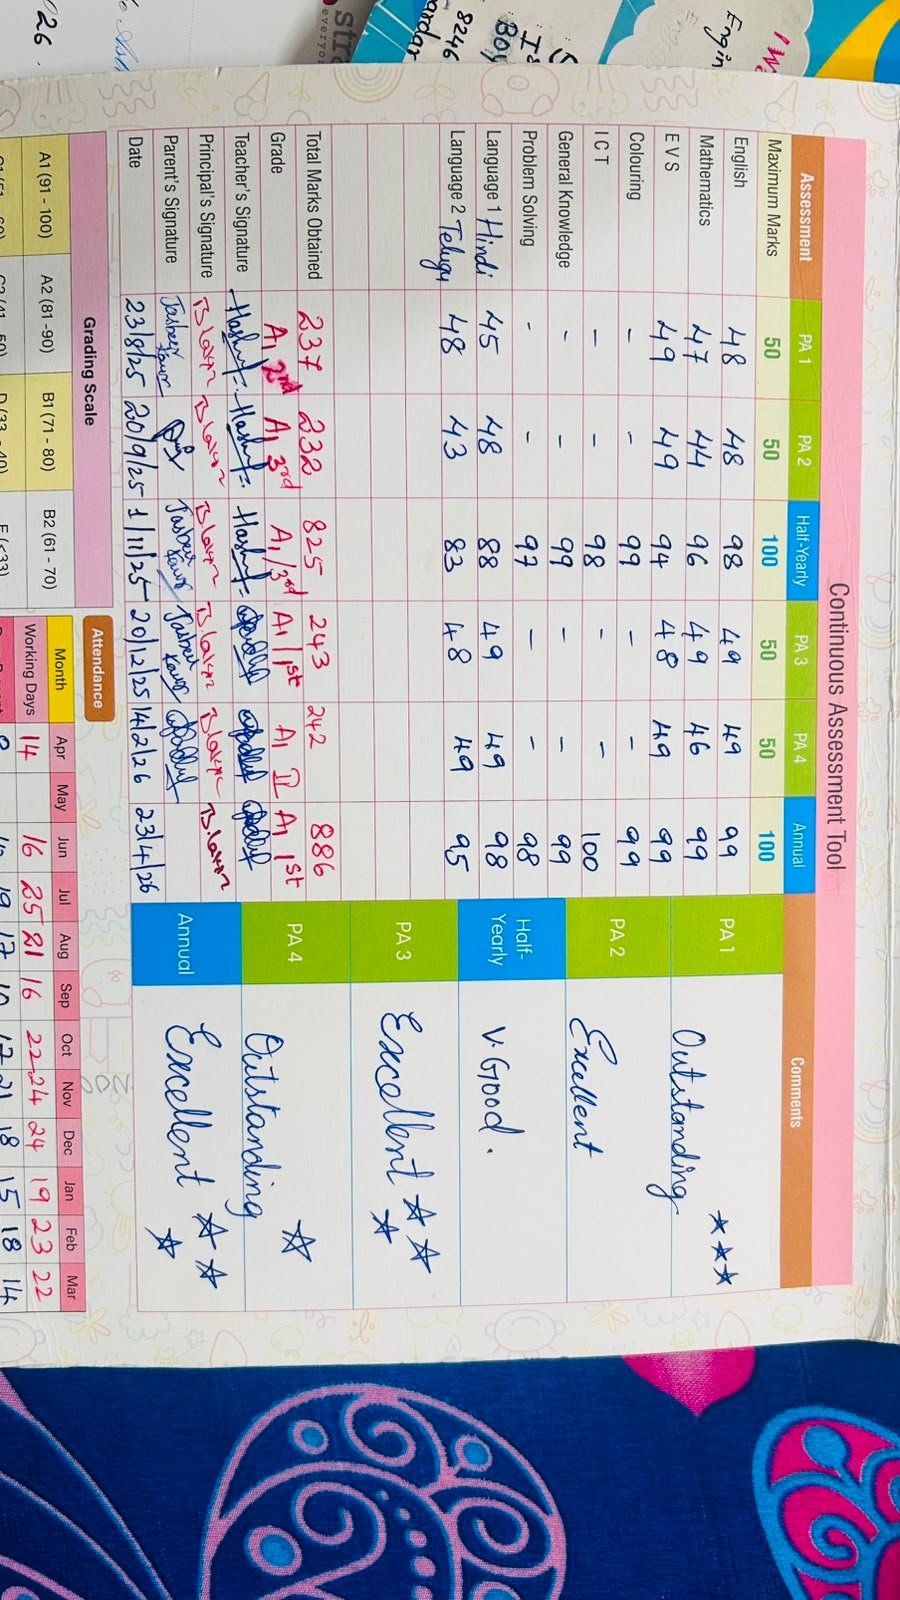 Continuous Assessment Tool
Assessment PA 1 PA 2 Half-Yearly PA 3 PA 4 Annual
Maximum Marks 50 50 100 50 50 100
English 48 48 98 49 49 99
Mathematics 47 44 96 49 46 99
E V S 49 49 94 48 49 99
Colouring - - 99 - - 99
I C T - - 98 - - 100
General Knowledge - - 99 - - 99
Problem Solving - - 97 - - 98
Language 1 Hindi 45 48 88 49 49 98
Language 2 Telugu 48 43 83 48 49 95
Total Marks Obtained 237 232 825 243 242 886
Grade A1 2nd A1 3rd A1/3rd A1/1st A1 II A1 1st
Teacher's Signature
Principal's Signature
Parent's Signature Jasbeer Kaur
Date 23/8/25 20/9/25 1/11/25 20/12/25 14/2/26 23/4/26
Comments
PA 1 Outstanding
PA 2 Excellent
Half-Yearly V.Good.
PA 3 Excellent
PA 4 Outstanding
Annual Excellent
Grading Scale
A1 (91 - 100) A2 (81 -90) B1 (71 - 80) B2 (61 - 70)
Attendance
Month Apr May Jun Jul Aug Sep Oct Nov Dec Jan Feb Mar
Working Days 14 16 25 21 16 22 24 24 19 23 22
18 15 18 14
8246